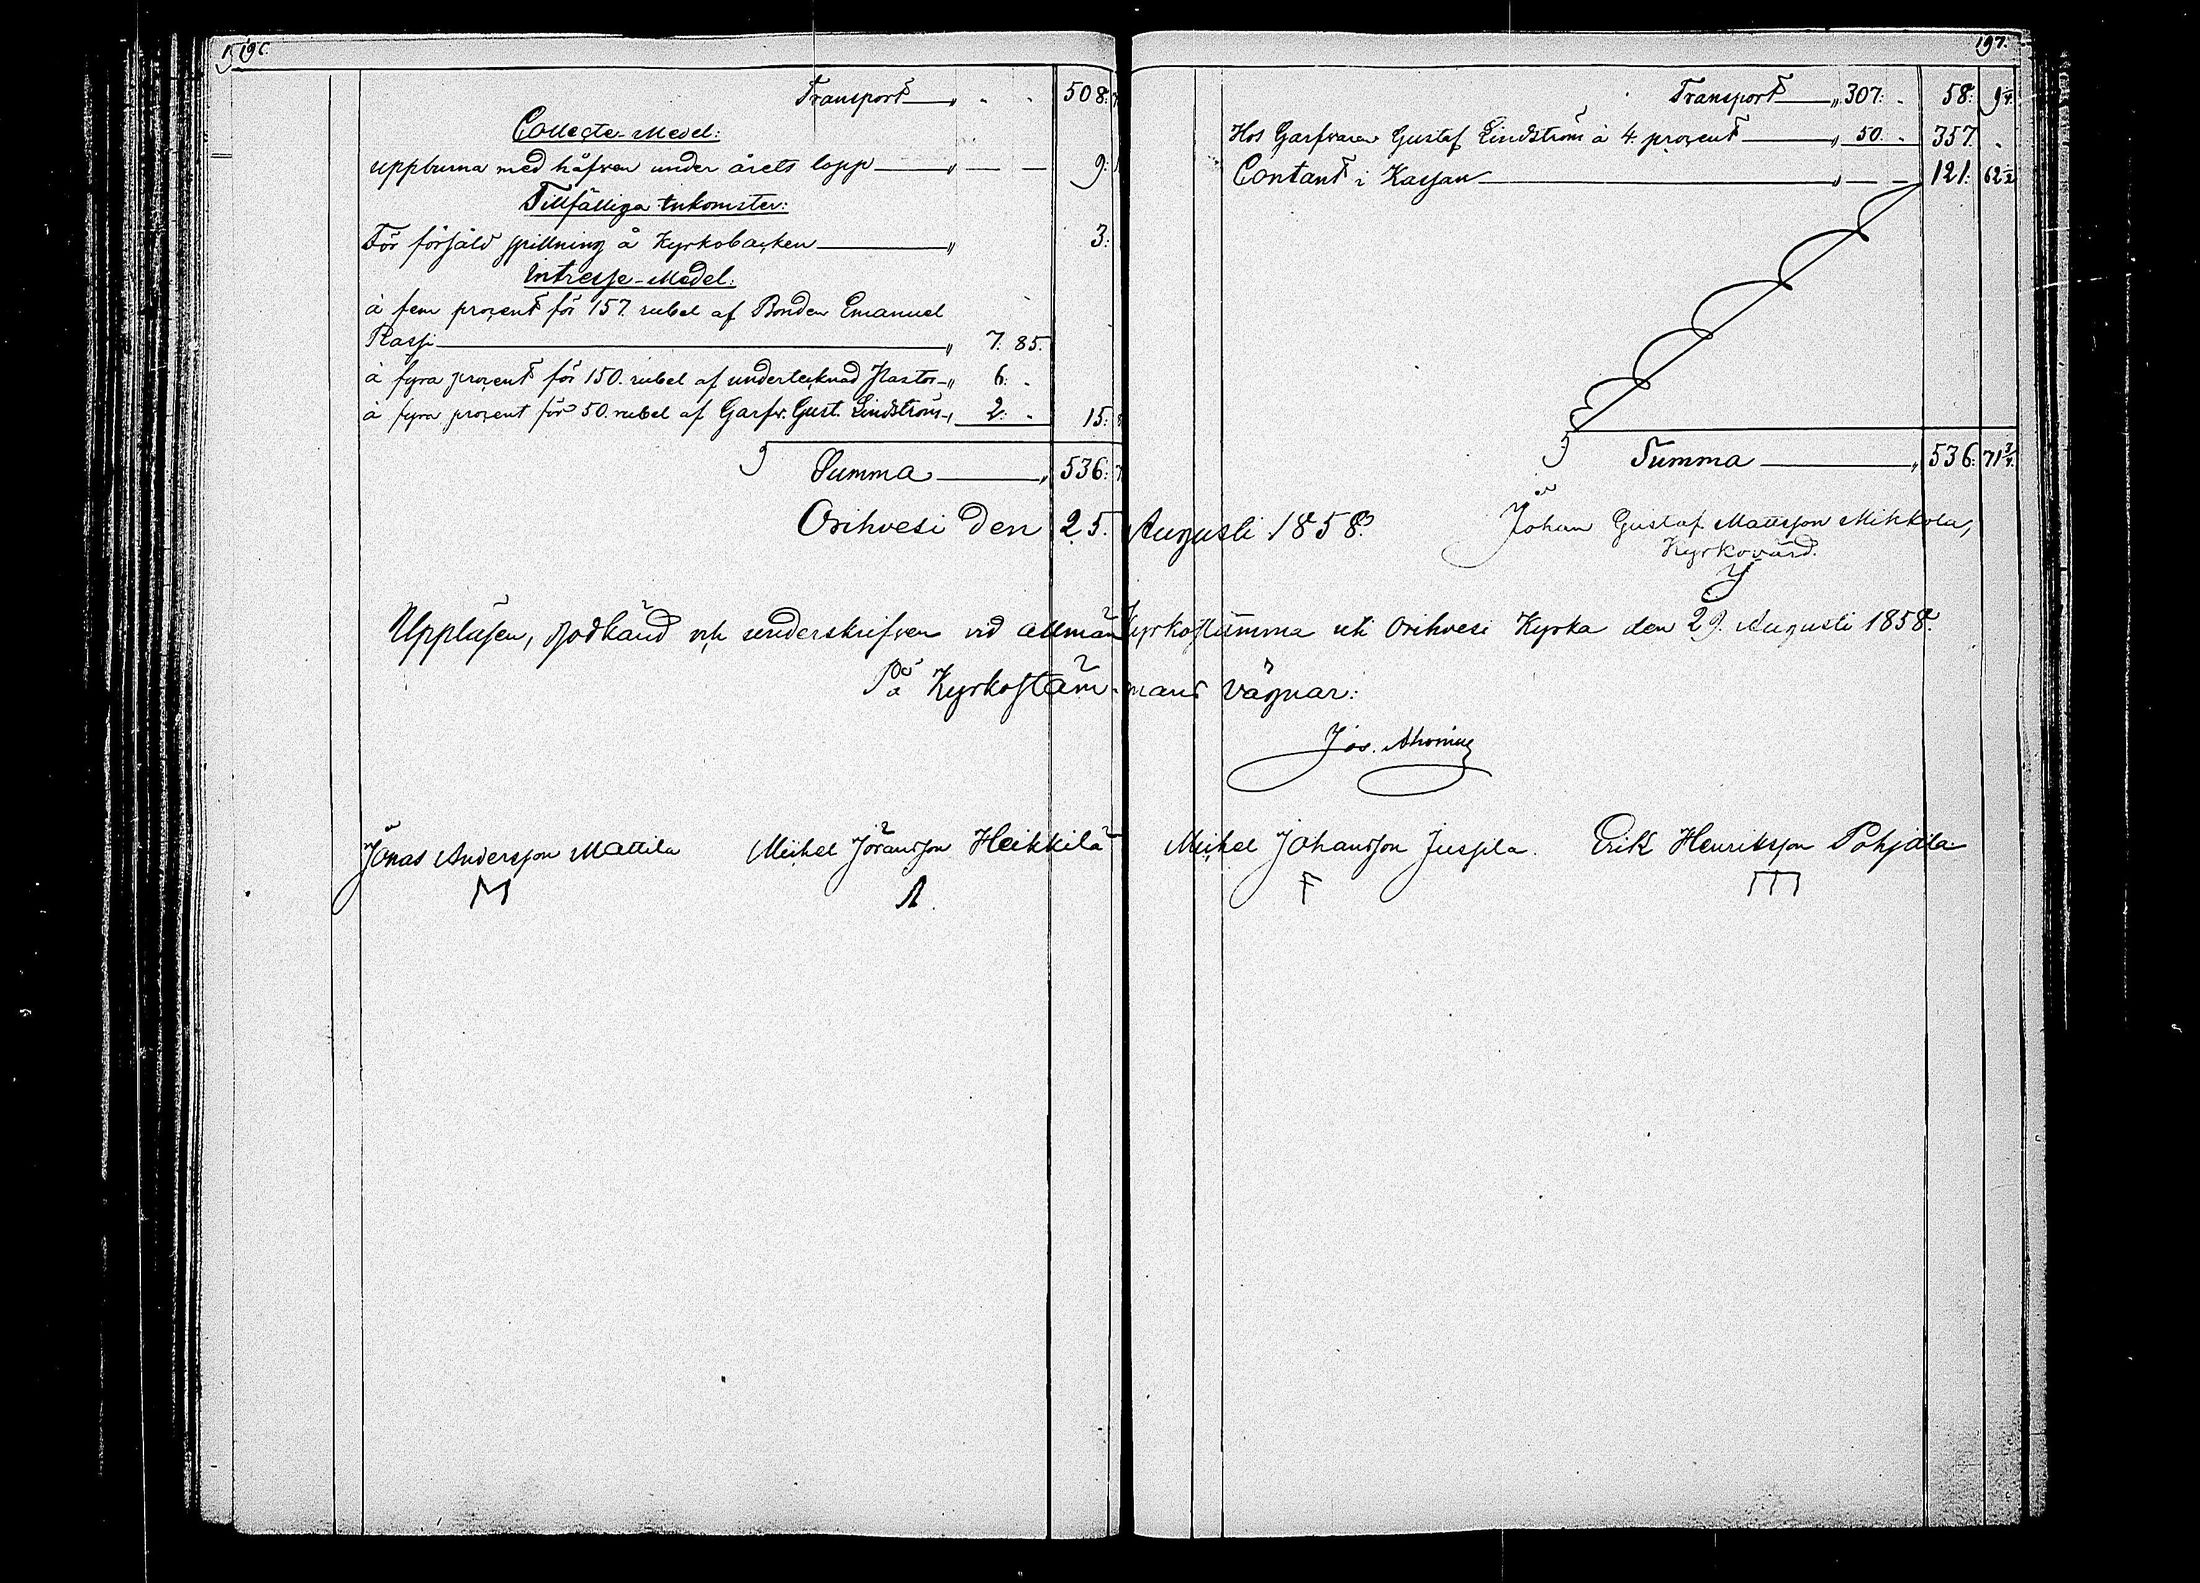 196.
Transport — " - - 508:
Collecte-Medel:
uppburna med håfven under årets lopp — " — — 9:
Tillfälliga Inkomster:
För försåld spillning å Kyrkobacken — " 3:
Intresse-Medel:
à fem procent för 157. rubel af Bonden Emanuel
Rassi — " 7. 85.
à fyra procent för 150. rubel af undertecknad Pastor — " 6. -
à fyra procent för 50. rubel af Garfv. Gust. Lindström — " 2. - 15:
Summa — " 536:
197.
Transport — " 307: - 58: 9 1/4.
Hos Garfvaren Gustaf Lindström à 4. procent — " 50. - 357. -
Contant i Kassan — " — — 121. 62 1/2
Summa — " 536: 71 3/4.
Orihvesi den 25. Augusti 1858.
Johan Gustaf Mattsson Mikkola,
Kyrkovärd.
Uppläsen, godkänd och underskrifven vid allmän Kyrkostämma uti Orihvesi Kyrka den 29. Augusti 1858.
På Kyrkostämmans vägnar:
Jos. Ahonius
Jonas Andersson Mattila Michel Göransson Heikkilä Michel Johansson Jussila. Erik Henriksson Pohjala